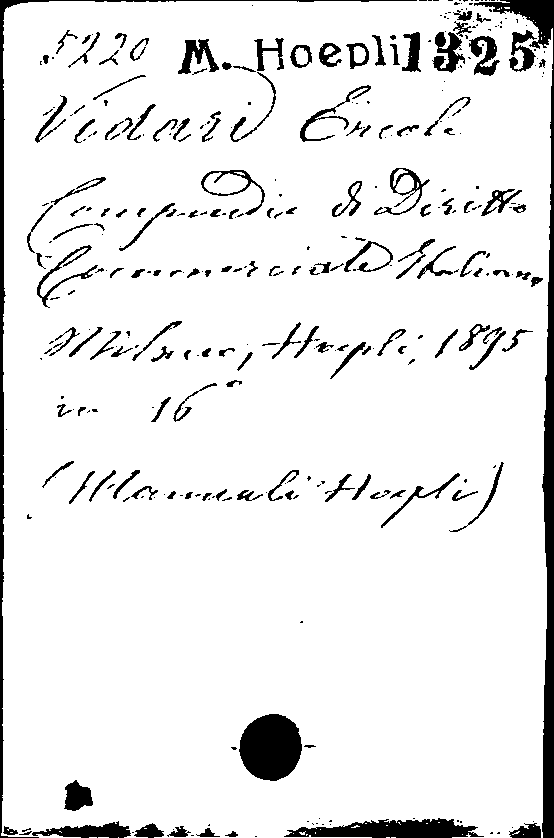 5220 M. Hoepli 1325
Vidari Ercole
Compendio di Diritto
Commerciale Italiano
Milano, Hoepli, 1895
in 16°
(Manuali Hoepli)